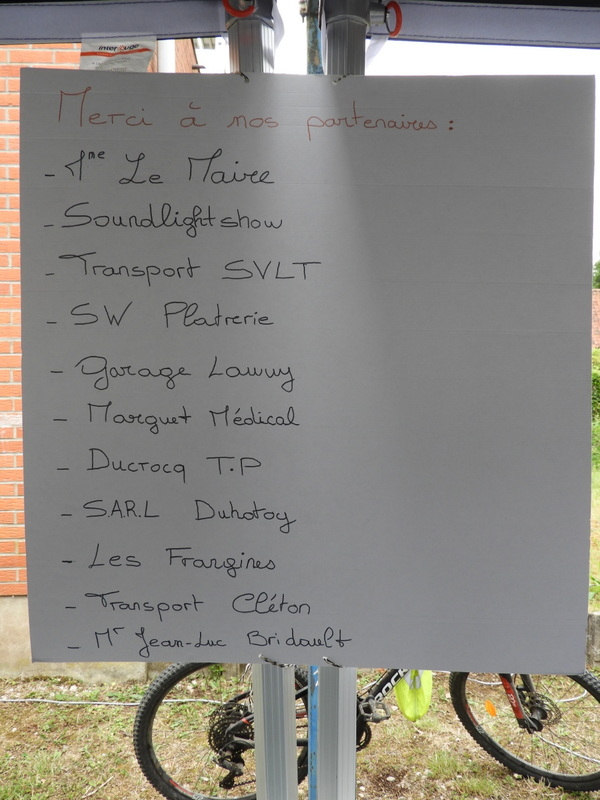 Merci à nos partenaires :
- Mme Le Maire
- Soundlightshow
- Transport SVLT
- SW Platrerie
- Garage Lawuy
- Marguet Médical
- Ducrocq T.P
- S.A.R.L Duhotoy
- Les Frangines
- Transport Cléton
- Mr Jean-Luc Bridault